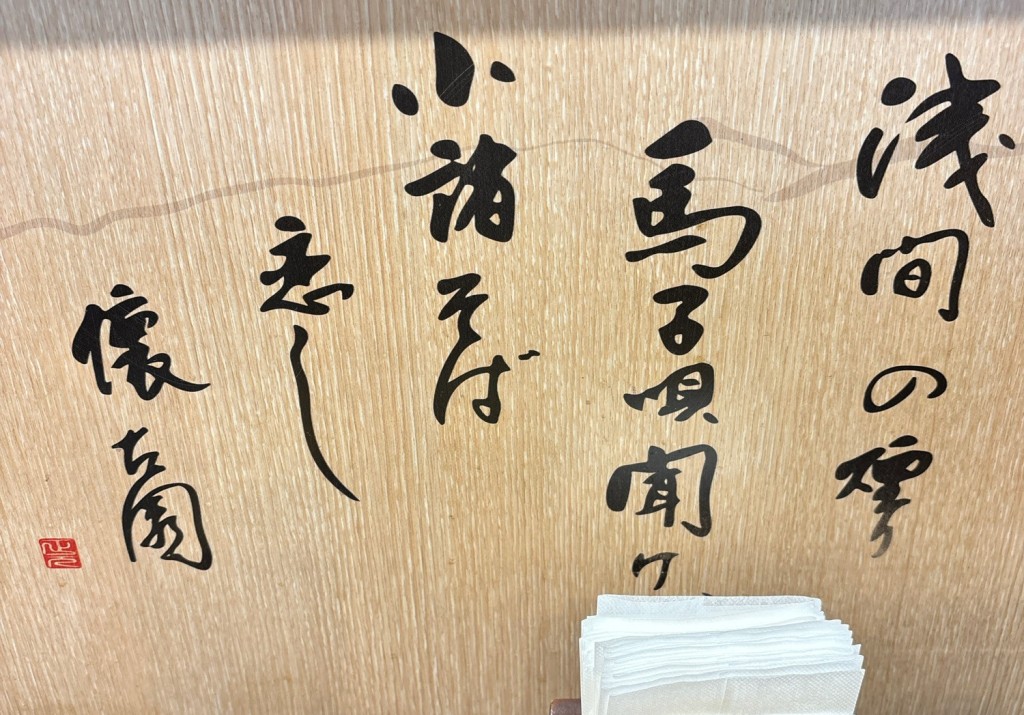 浅間の煙り
馬子唄聞け
小諸そば
恋し
懐古園